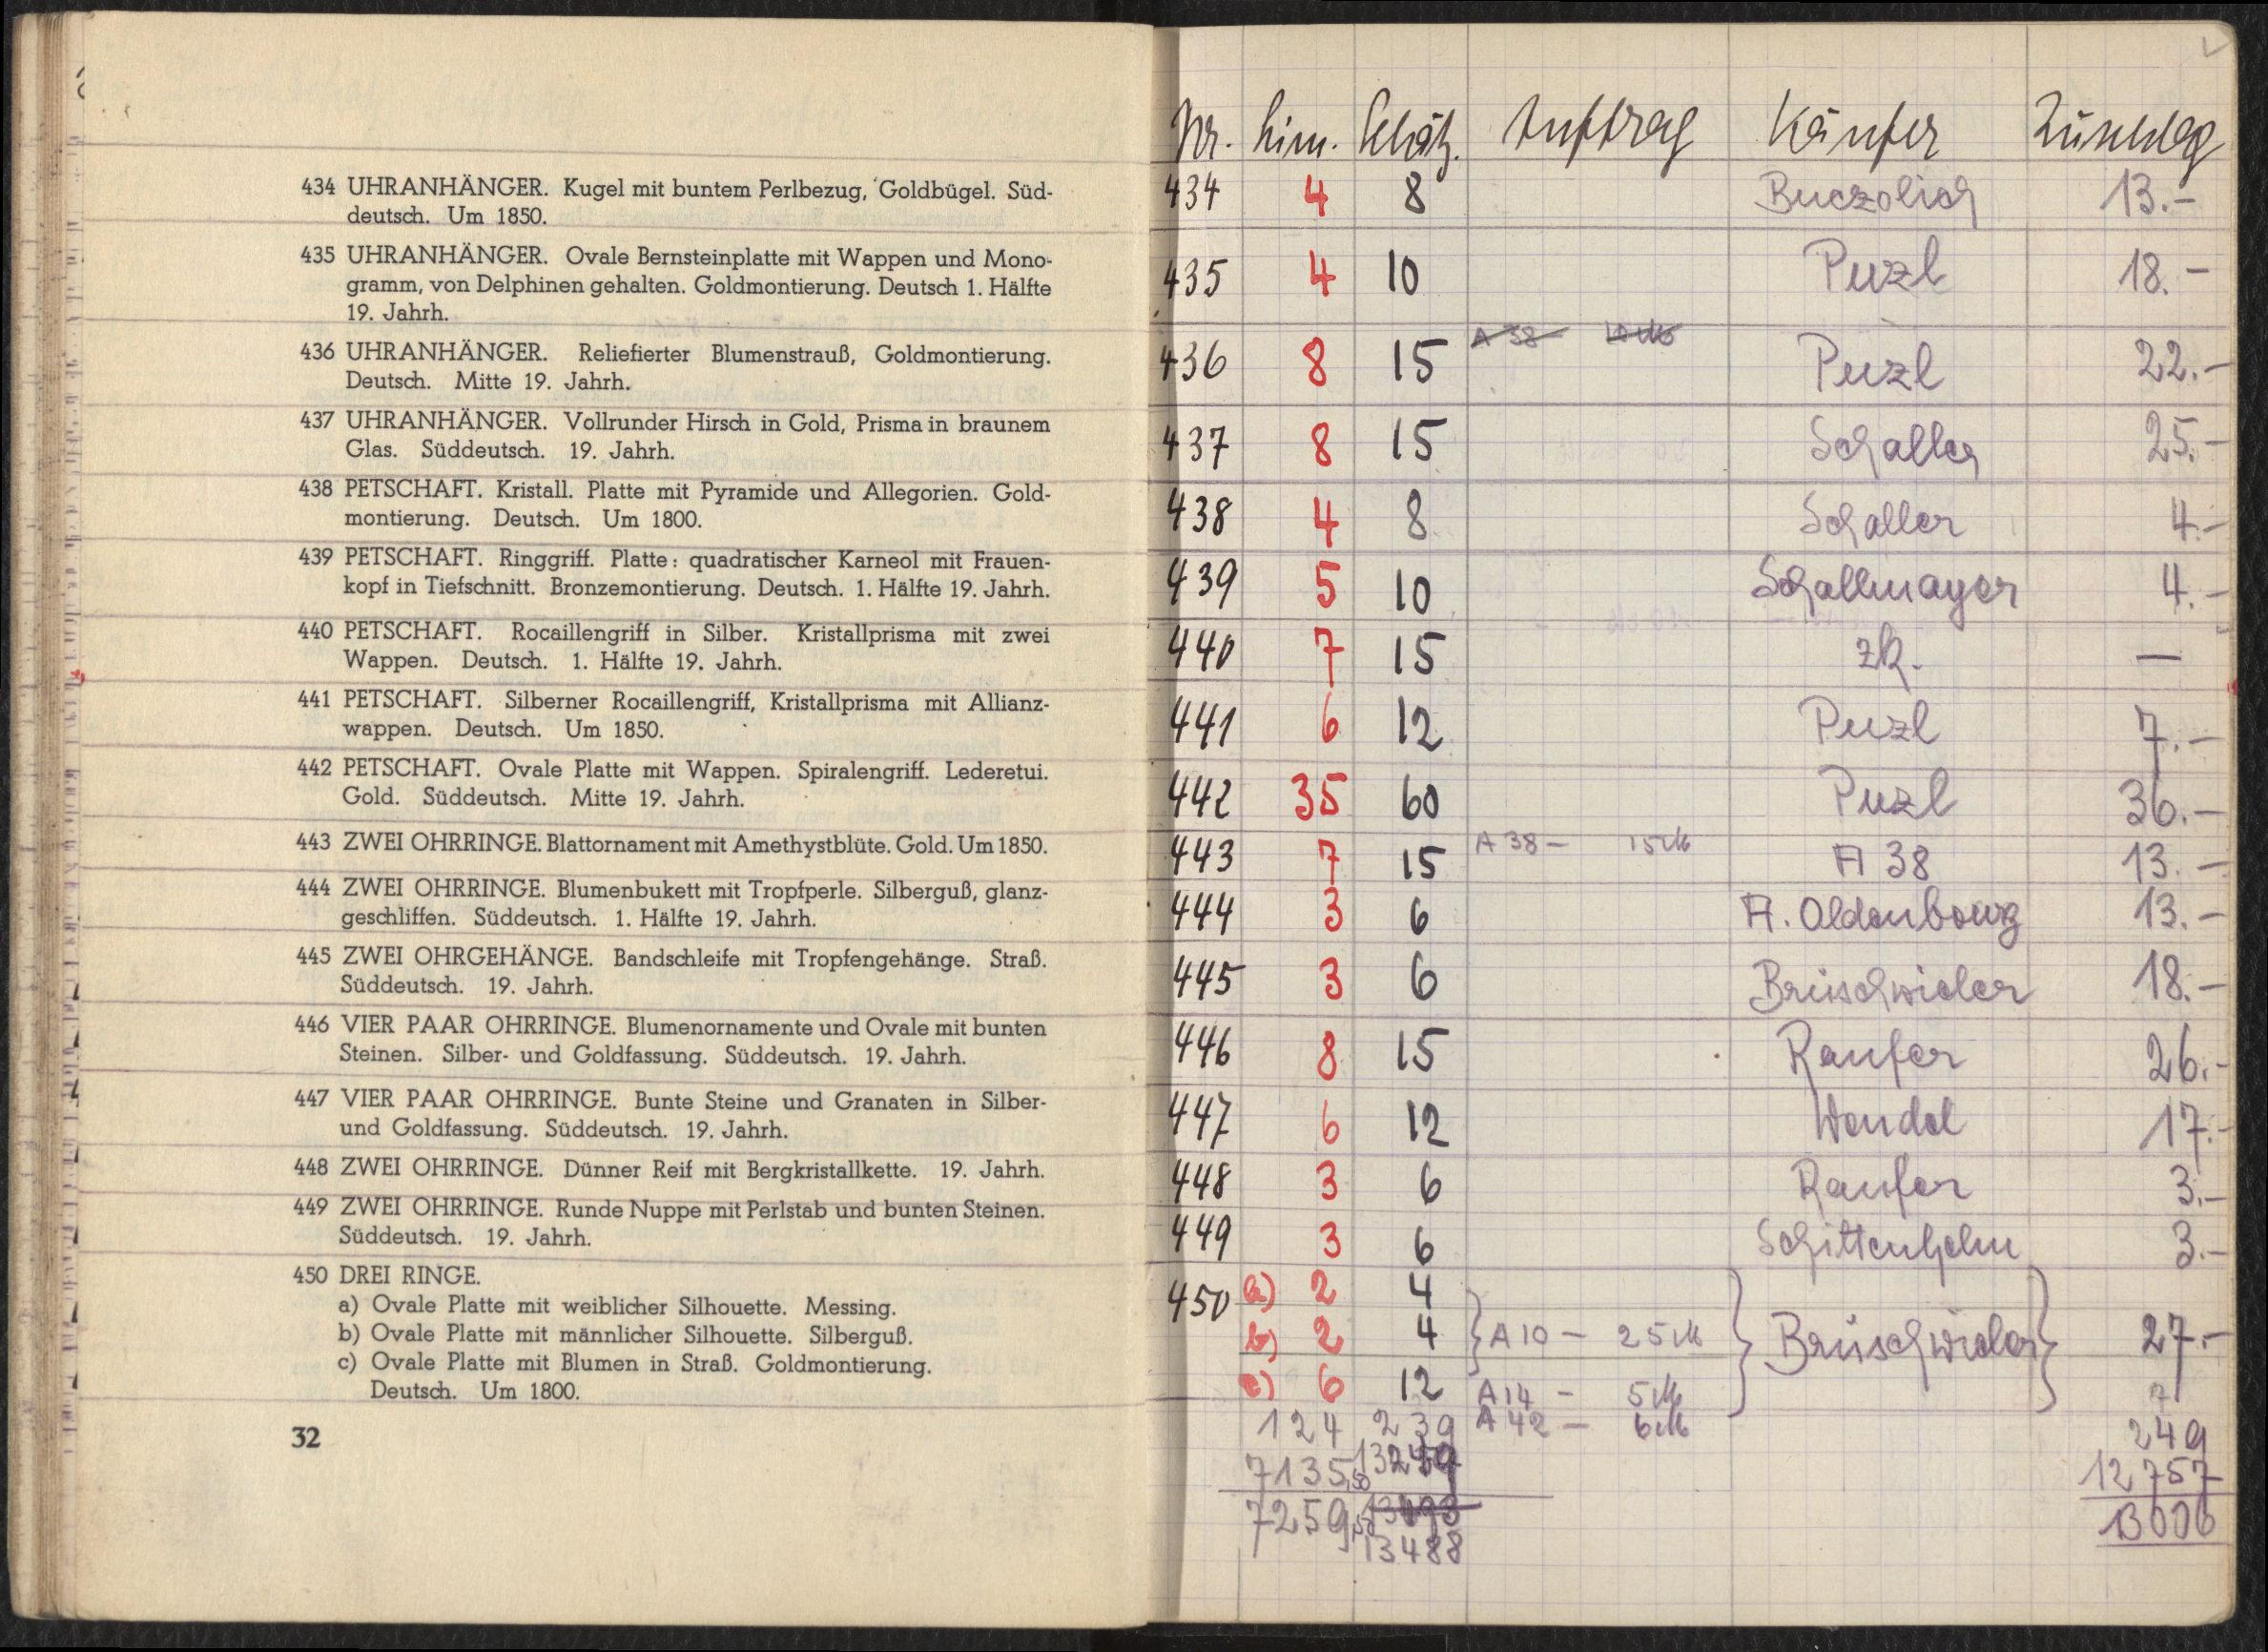 434 UHRANHÄNGER. Kugel mit buntem Perlbezug, Goldbügel. Süd-
deutsch. Um 1850.
435 UHRANHÄNGER. Ovale Bernsteinplatte mit Wappen und Mono-
gramm, von Delphinen gehalten. Goldmontierung. Deutsch 1. Hälfte
19. Jahrh.
436 UHRANHÄNGER. Reliefierter Blumenstrauß, Goldmontierung.
Deutsch. Mitte 19. Jahrh.
437 UHRANHÄNGER. Vollrunder Hirsch in Gold, Prisma in braunem
Glas. Süddeutsch. 19. Jahrh.
438 PETSCHAFT. Kristall. Platte mit Pyramide und Allegorien. Gold-
montierung. Deutsch. Um 1800.
439 PETSCHAFT. Ringgriff. Platte: quadratischer Karneol mit Frauen-
kopf in Tiefschnitt. Bronzemontierung. Deutsch. 1. Hälfte 19. Jahrh.
440 PETSCHAFT. Rocaillengriff in Silber. Kristallprisma mit zwei
Wappen. Deutsch. 1. Hälfte 19. Jahrh.
441 PETSCHAFT. Silberner Rocaillengriff, Kristallprisma mit Allianz-
wappen. Deutsch. Um 1850.
442 PETSCHAFT. Ovale Platte mit Wappen. Spiralengriff. Lederetui.
Gold. Süddeutsch. Mitte 19. Jahrh.
443 ZWEI OHRRINGE. Blattornament mit Amethystblüte. Gold. Um 1850.
444 ZWEI OHRRINGE. Blumenbukett mit Tropfperle. Silberguß, glanz-
geschliffen. Süddeutsch. 1. Hälfte 19. Jahrh.
445 ZWEI OHRGEHÄNGE. Bandschleife mit Tropfengehänge. Straß.
Süddeutsch. 19. Jahrh.
446 VIER PAAR OHRRINGE. Blumenornamente und Ovale mit bunten
Steinen. Silber- und Goldfassung. Süddeutsch. 19. Jahrh.
447 VIER PAAR OHRRINGE. Bunte Steine und Granaten in Silber-
und Goldfassung. Süddeutsch. 19. Jahrh.
448 ZWEI OHRRINGE. Dünner Reif mit Bergkristallkette. 19. Jahrh.
449 ZWEI OHRRINGE. Runde Nuppe mit Perlstab und bunten Steinen.
Süddeutsch. 19. Jahrh.
450 DREI RINGE.
a) Ovale Platte mit weiblicher Silhouette. Messing.
b) Ovale Platte mit männlicher Silhouette. Silberguß.
c) Ovale Platte mit Blumen in Straß. Goldmontierung.
Deutsch. Um 1800.
32
Nr. Lim. Schätz. Auftrag Käufer Zuschlag
434 4 8 Buczolich 13.-
435 4 10 Puzl 18.-
436 8 15 A 38 Puzl 22.-
437 8 15 Schaller 25.-
438 4 8 Schaller 4.-
439 5 10 Schallmayer 4.-
440 7 15 zk. —
441 6 12 Puzl 7.-
442 35 60 Puzl 36.-
443 7 15 A 38 - 15 M A 38 13.-
444 3 6 A. Oldenbourg 13.-
445 3 6 Brüschwieler 18.-
446 8 15 Raufer 26.-
447 6 12 Wendel 17.-
448 3 6 Raufer 3.-
449 3 6 Schittenhelm 3.-
450 a) 2 4
b) 2 4 A 10 - 25 M Brüschwieler 27.-
c) 6 12 A 14 - 5 M
124 239 A 42 - 6 M 249
7135,50 12757
7259,50 13006
13488